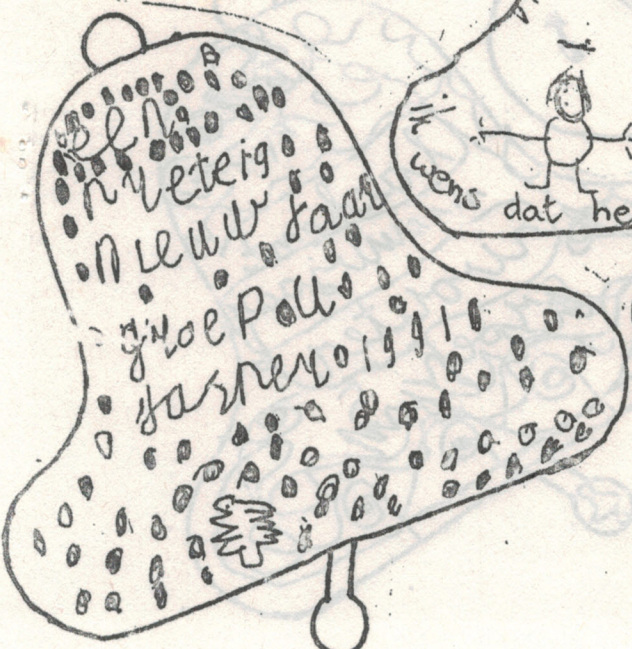 een
nreteig
nieuw jaar
groepall
jasper 1991
ik
wens
dat he